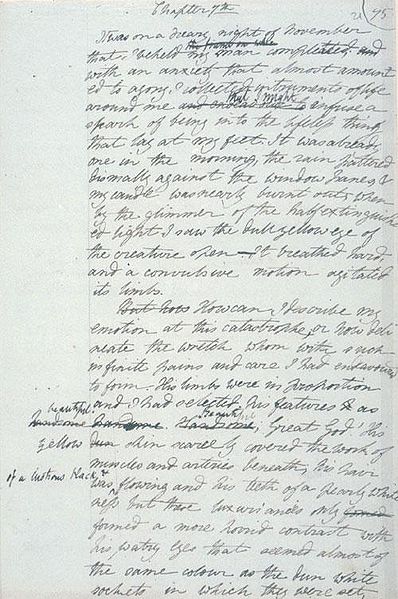 Chapter 7th
2( 95
It was on a dreary night of November
the frame on whic
that I beheld my man compleated; and
with an anxiety that almost amount
ed to agony, I collected instruments of life
that I might
around me and endeavour to infuse a
spark of being into the lifeless thing
that lay at my feet. It was already
one in the morning, the rain pattered
dismally against the window panes, &
my candle was nearly burnt out, when
by the glimmer of the half extinguish
ed light I saw the dull yellow eye of
the creature open—It breathed hard,
and a convulsive motion agitated
its limbs.
But how How can I describe my
emotion at this catastrophe, or how deli
neate the wretch whom with such
infinite pains and care I had endeavoured
to form. His limbs were in proportion
and I had selected his features & as
beautiful.
handsome handsome Handsome, Beautiful; Great God! His
yellow dun skin scarcely covered the work of
muscles and arteries beneath; his hair
of a lustrous black, &
was flowing and his teeth of a pearly white
ness but these luxuriances only formed
formed a more horrid contrast with
his watry eyes that seemed almost of
the same colour as the dun white
sockets in which they were set,